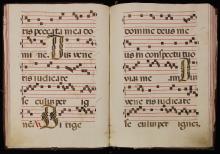 ris peccata mea do
mine. Dum vene
ris iudicare
seculum per ig
nem. Dirige
domine deus me
us in conspectu tuo
viam me am. Dum
vene ris iudicare
seculum per ignem.